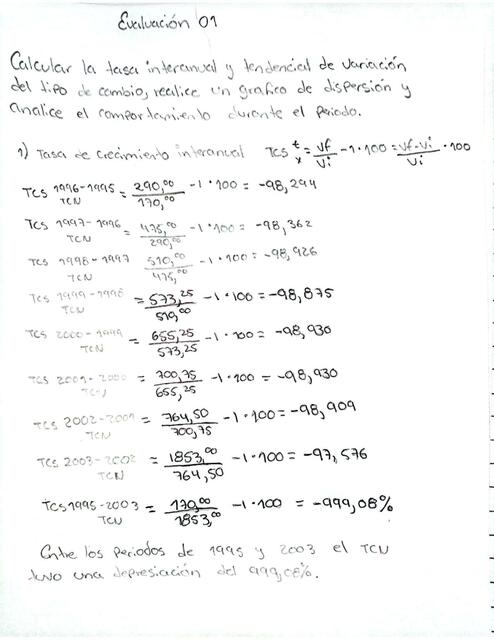 Evaluación 01
Calcular la tasa interanual y tendencial de variación
del tipo de cambio, realice un grafico de dispersión y
analice el comportamiento durante el periodo.
1) Tasa de crecimiento interanual TCS t x = Vf/Vi - 1 · 100 = Vf-Vi/Vi · 100
TCS 1996-1995 TCN = 290,00/170,00 - 1 · 100 = -98,294
TCS 1997-1996 TCN = 475,00/290,00 - 1 · 100 = -98,362
TCS 1998-1997 TCN = 510,00/475,00 - 1 · 100 = -98,926
TCS 1999-1998 TCN = 573,25/510,00 - 1 · 100 = -98,875
TCS 2000-1999 TCN = 655,25/573,25 - 1 · 100 = -98,930
TCS 2001-2000 TCN = 700,75/655,25 - 1 · 100 = -98,930
TCS 2002-2001 TCN = 764,50/700,75 - 1 · 100 = -98,909
TCS 2003-2002 TCN = 1853,00/764,50 - 1 · 100 = -97,576
TCS 1995-2003 TCN = 170,00/1853,00 - 1 · 100 = -999,08%
Entre los periodos de 1995 y 2003 el TCN
tuvo una depresiación del 999,08%.